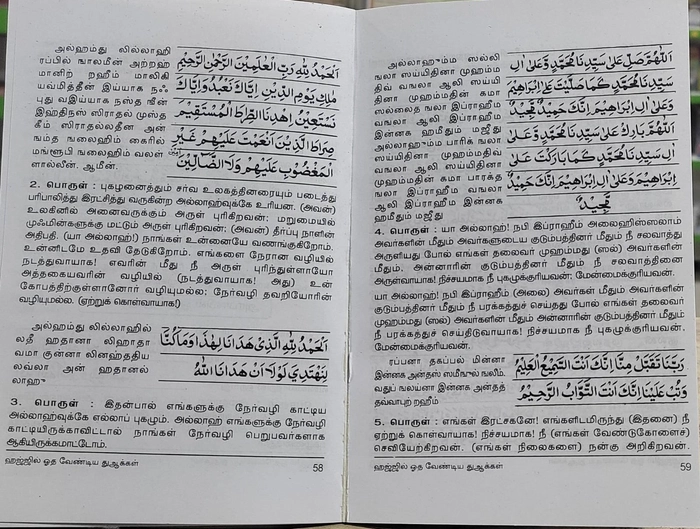 அல்ஹம்து லில்லாஹி
ரப்பில் ஙாலமீன் அற்றஹ்
மானிற் றஹீம் மாலிகி
யவ்மித்தீன் இய்யாக நஃ
புது வஇய்யாக நஸ்த ஈன்
இஹ்திநஸ் ஸிராதல் முஸ்த
கீம் ஸிராதல்லதீன அன்
நம்த ஙலைஹிம் கைரில்
மங்ளூபி ஙலைஹிம் வலள்
ளால்லீன். ஆமீன்.
اَلْحَمْدُ لِلّٰهِ رَبِّ الْعٰلَمِيْنَ الرَّحْمٰنِ الرَّحِيْمِ
مٰلِكِ يَوْمِ الدِّيْنِ اِيَّاكَ نَعْبُدُ وَاِيَّاكَ
نَسْتَعِيْنُ اِهْدِنَا الصِّرَاطَ الْمُسْتَقِيْمَ
صِرَاطَ الَّذِيْنَ اَنْعَمْتَ عَلَيْهِمْ غَيْرِ
الْمَغْضُوْبِ عَلَيْهِمْ وَلَا الضَّالِّيْنَ
2. பொருள் : புகழனைத்தும் சர்வ உலகத்தினரையும் படைத்து
பரிபாலித்து இரட்சித்து வருகின்ற அல்லாஹ்வுக்கே உரியன. (அவன்)
உலகினில் அனைவருக்கும் அருள் புரிகிறவன்; மறுமையில்
முஃமின்களுக்கு மட்டும் அருள் புரிகிறவன்; (அவன்) தீர்ப்பு நாளின்
அதிபதி. (யா அல்லாஹ்!) நாங்கள் உன்னையே வணங்குகிறோம்.
உன்னிடமே உதவி தேடுகிறோம். எங்களை நேரான வழியில்
நடத்துவாயாக! எவரின் மீது நீ அருள் புரிந்துள்ளாயோ
அத்தகையவரின் வழியில் (நடத்துவாயாக! அது) உன்
கோபத்திற்குள்ளானோர் வழியுமல்ல; நேர்வழி தவறியோரின்
வழியுமல்ல. (ஏற்றுக் கொள்வாயாக!)
அல்ஹம்து லில்லாஹில்
லதீ ஹதானா லிஹாதா
வமா குன்னா லினஹ்ததிய
லவ்லா அன் ஹதானல்
லாஹு
اَلْحَمْدُ لِلّٰهِ الَّذِىْ هَدَانَا لِهٰذَا وَمَا كُنَّا
لِنَهْتَدِىَ لَوْلَا اَنْ هَدَانَا اللهُ
3. பொருள் : இதன்பால் எங்களுக்கு நேர்வழி காட்டிய
அல்லாஹ்வுக்கே எல்லாப் புகழும். அல்லாஹ் எங்களுக்கு நேர்வழி
காட்டியிருக்காவிட்டால் நாங்கள் நேர்வழி பெறுபவர்களாக
ஆகியிருக்கமாட்டோம்.
ஹஜ்ஜில் ஓத வேண்டிய துஆக்கள் 58
அல்லாஹும்ம ஸல்லி
ஙலா ஸய்யிதினா முஹம்ம
திவ் வஙலா ஆலி ஸய்யி
தினா முஹம்மதின் கமா
ஸல்லைத ஙலா இப்ராஹீம
வஙலா ஆலி இப்ராஹீம
இன்னக ஹமீதும் மஜீது
அல்லாஹும்ம பாரிக் ஙலா
ஸய்யிதினா முஹம்மதிவ்
வஙலா ஆலி ஸய்யிதினா
முஹம்மதின் கமா பாரக்த
ஙலா இப்ராஹீம வஙலா
ஆலி இப்ராஹீம இன்னக
ஹமீதும் மஜீது
اَللّٰهُمَّ صَلِّ عَلٰى سَيِّدِنَا مُحَمَّدٍ وَّعَلٰى اٰلِ
سَيِّدِنَا مُحَمَّدٍ كَمَا صَلَّيْتَ عَلٰى اِبْرَاهِيْمَ
وَعَلٰى اٰلِ اِبْرَاهِيْمَ اِنَّكَ حَمِيْدٌ مَّجِيْدٌ
اَللّٰهُمَّ بَارِكْ عَلٰى سَيِّدِنَا مُحَمَّدٍ وَّعَلٰى
اٰلِ سَيِّدِنَا مُحَمَّدٍ كَمَا بَارَكْتَ عَلٰى
اِبْرَاهِيْمَ وَعَلٰى اٰلِ اِبْرَاهِيْمَ اِنَّكَ حَمِيْدٌ
مَّجِيْدٌ
4. பொருள் : யா அல்லாஹ்! நபி இப்ராஹீம் அலைஹிஸ்ஸலாம்
அவர்களின் மீதும் அவர்களுடைய குடும்பத்தினர் மீதும் நீ சலவாத்து
அருளியது போல் எங்கள் தலைவர் முஹம்மது (ஸல்) அவர்களின்
மீதும், அன்னாரின் குடும்பத்தினர் மீதும் நீ சலவாத்தினை
அருள்வாயாக! நிச்சயமாக நீ புகழுக்குரியவன்; மேன்மைக்குரியவன்.
யா அல்லாஹ்! நபி இப்ராஹீம் (அலை) அவர்கள் மீதும் அவர்களின்
குடும்பத்தினர் மீதும் நீ பரக்கத்துச் செய்தது போல் எங்கள் தலைவர்
முஹம்மது (ஸல்) அவர்கள் மீதும் அன்னாரின் குடும்பத்தினர் மீதும்
நீ பரக்கத்துச் செய்திடுவாயாக! நிச்சயமாக நீ புகழுக்குரியவன்.
மேன்மைக்குரியவன்.
ரப்பனா தகப்பல் மின்னா
இன்னக அன்தஸ் ஸமீஉல் ஙலீம்.
வதுப் ஙலய்னா இன்னக அன்தத்
தவ்வாபுர் றஹீம்
رَبَّنَا تَقَبَّلْ مِنَّا اِنَّكَ اَنْتَ السَّمِيْعُ الْعَلِيْمُ
وَتُبْ عَلَيْنَا اِنَّكَ اَنْتَ التَّوَّابُ الرَّحِيْمُ
5. பொருள் : எங்கள் இரட்சகனே! எங்களிடமிருந்து (இதனை) நீ
ஏற்றுக் கொள்வாயாக! நிச்சயமாக! நீ (எங்கள் வேண்டுகோளைச்)
செவியேற்கிறவன். (எங்கள் நிலைகளை) நன்கு அறிகிறவன்.
ஹஜ்ஜில் ஓத வேண்டிய துஆக்கள் 59